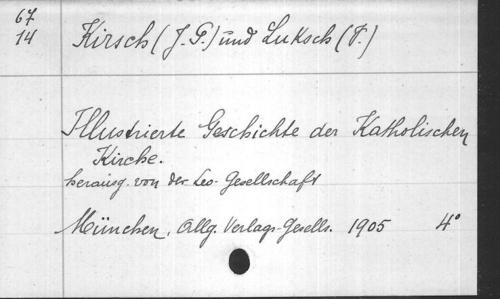 67
14
Kirsch (J. P.) und Luksch (V.)
Illustrierte Geschichte der Katholischen
Kirche.
herausg. von der Leo-Gesellschaft
München, Allg. Verlags-Gesells. 1905 4°